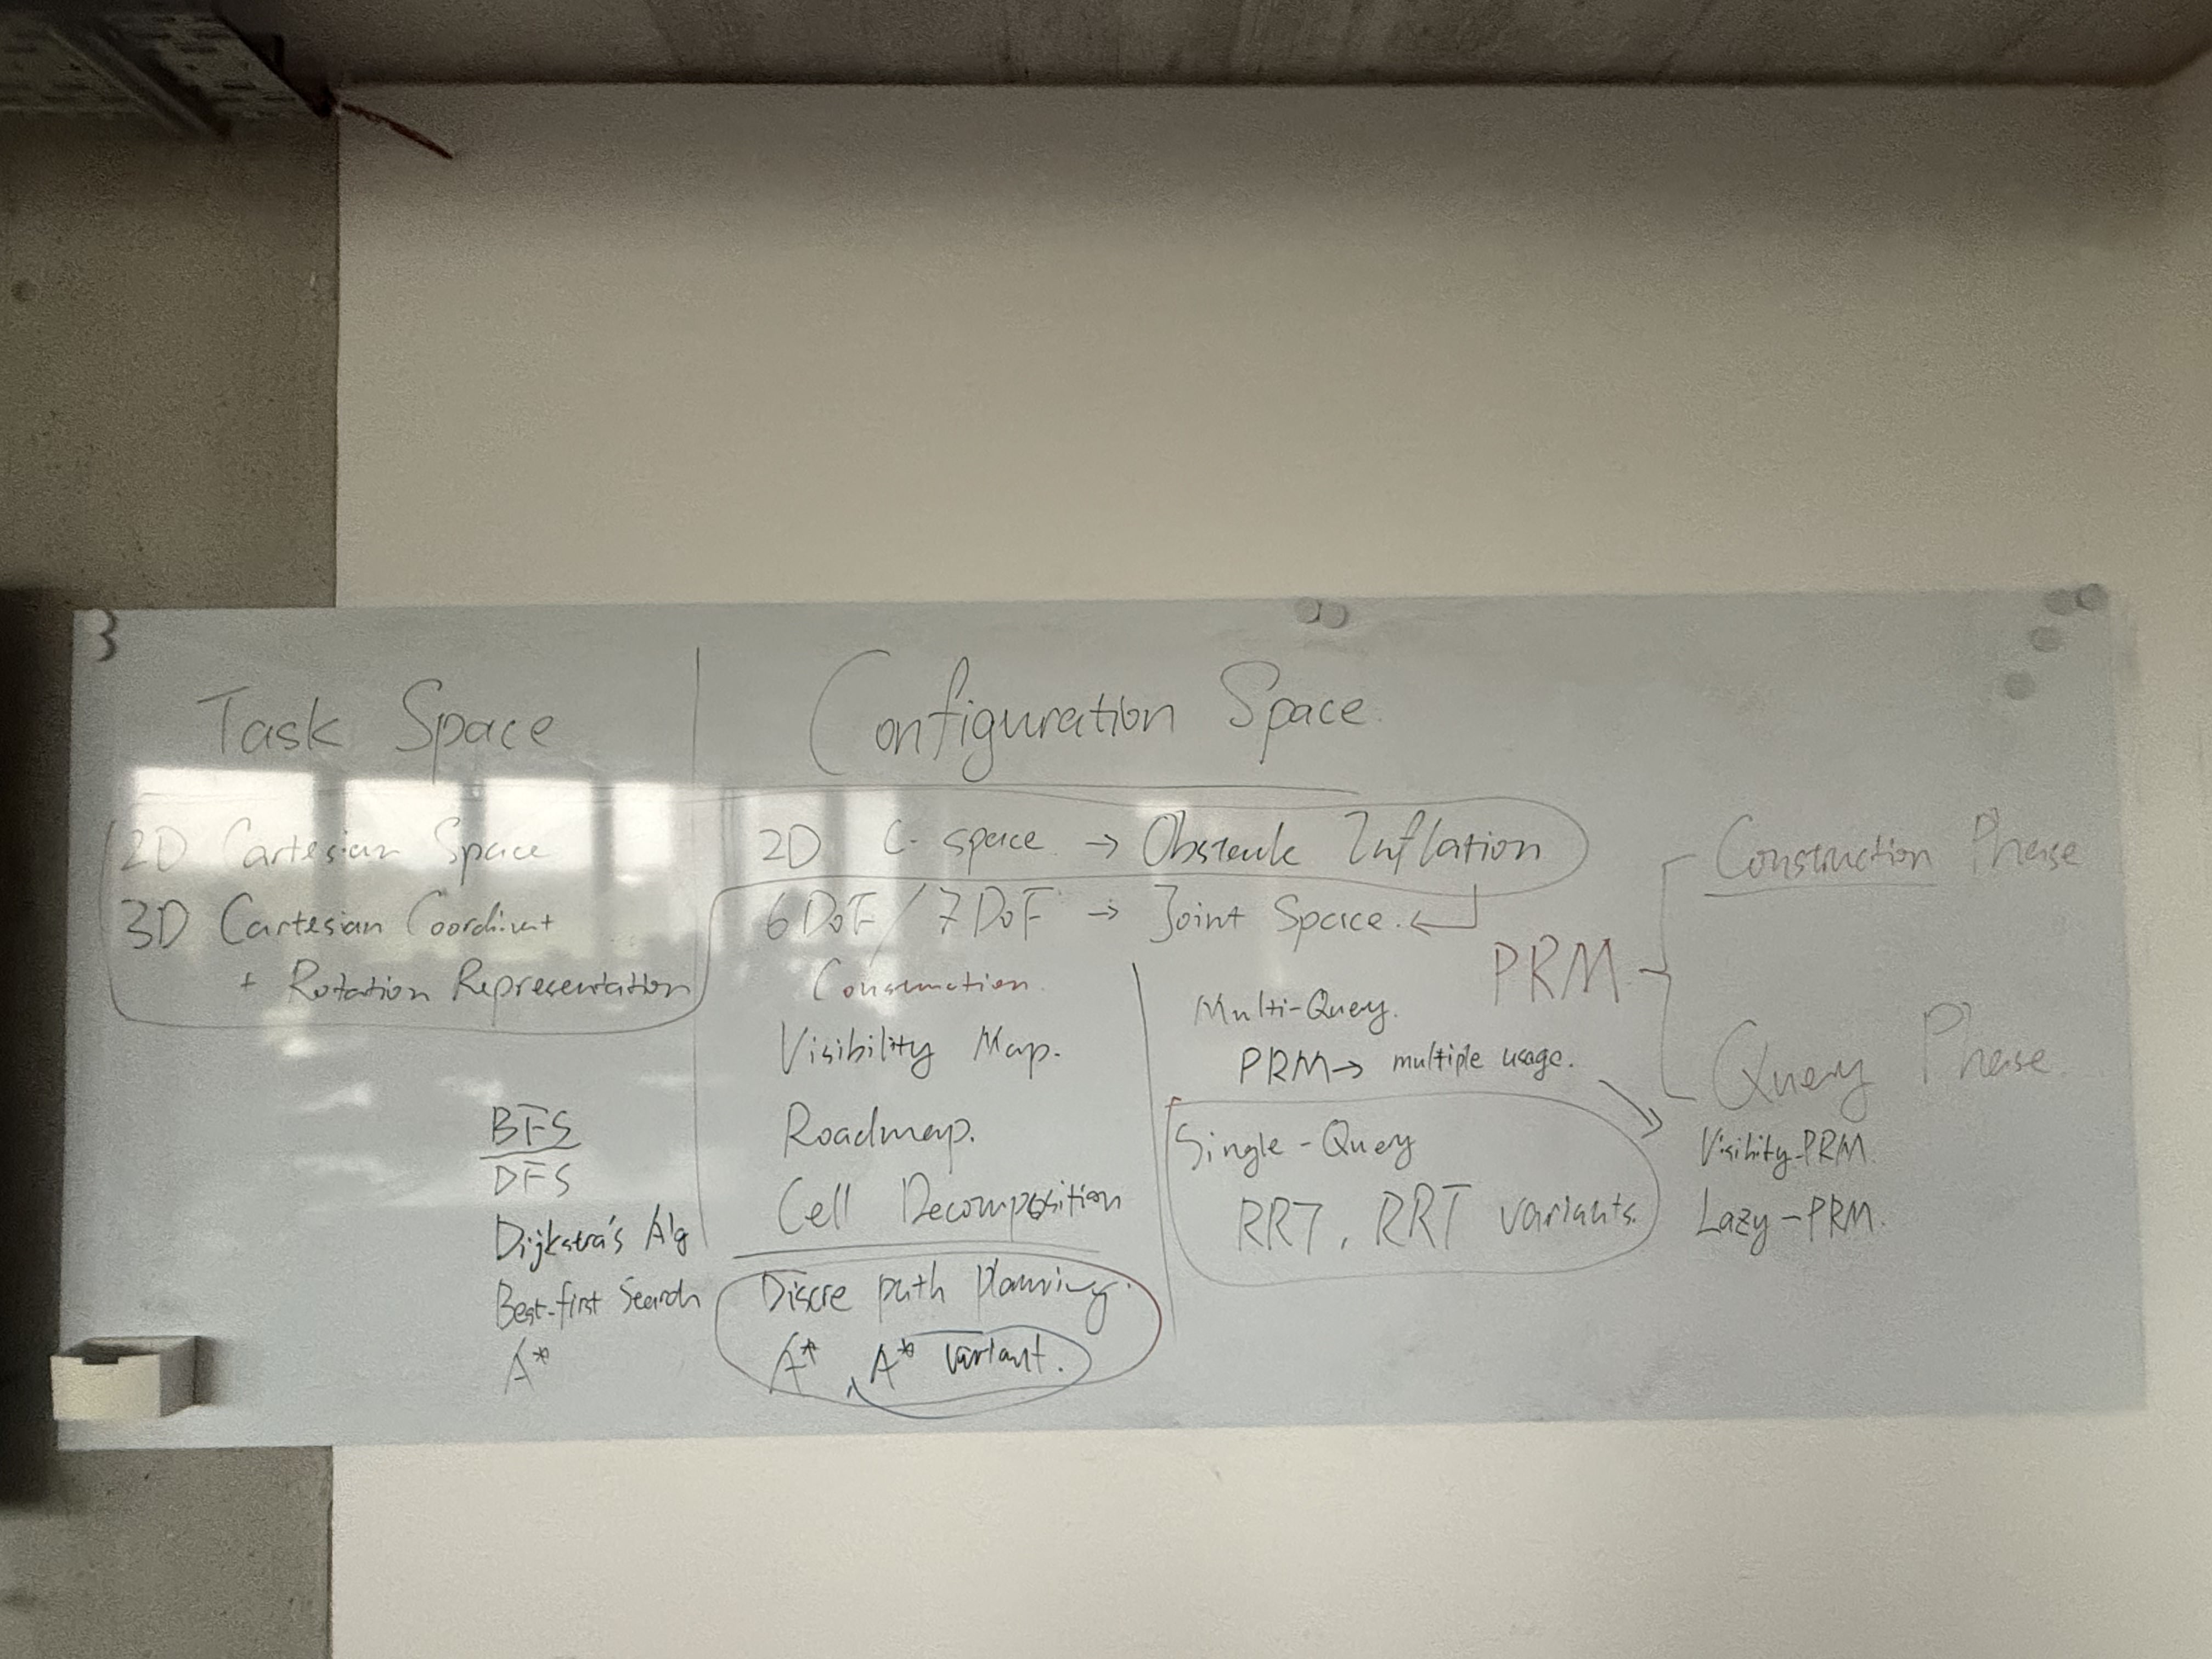 Task Space
2D Cartesian Space
3D Cartesian Coordinat
+ Rotation Representation
BFS
DFS
Dijkstra's Alg
Best-first Search
A*
Configuration Space
2D C-space → Obstacle Inflation
6 DoF / 7 DoF → Joint Space.
Construction
Visibility Map.
Roadmap.
Cell Decomposition
Discre path planning.
A*, A* variant.
Multi-Query.
PRM → multiple usage.
Single-Query
RRT, RRT variants.
PRM
Construction Phase
Query Phase
Visibility-PRM.
Lazy-PRM.